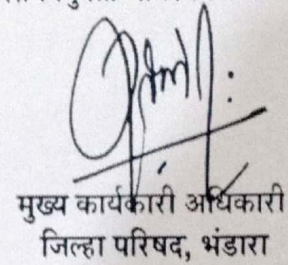 मुख्य कार्यकारी अधिकारी
जिल्हा परिषद, भंडारा